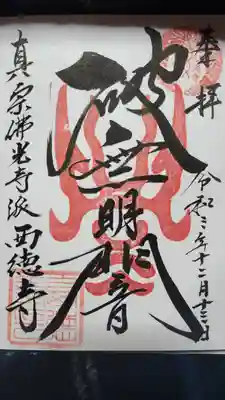 奉拝
令和三年十二月十三日
破無明闇
真宗佛光寺派 西徳寺